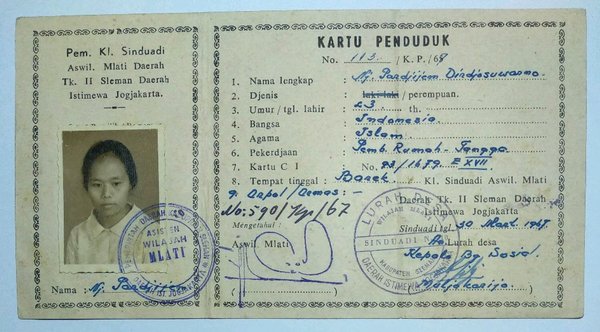 Pem. Kl. Sinduadi
Aswil. Mlati Daerah
Tk. II Sleman Daerah
Istimewa Jogjakarta.
ASISTEN
WILAJAH
MLATI
Nama : Nj. Pardijem
KARTU PENDUDUK
No. 113. / K.P./68
1. Nama lengkap : Nj. Pardijem Dirdjosuwarno.
2. Djenis : laki-laki / perempuan.
3. Umur / tgl. lahir : 23 th.
4. Bangsa : Indonesia
5. Agama : Islam
6. Pekerdjaan : Pemb. Rumah-Tangga
7. Kartu C I : No. 93/1679 E XVII
8. Tempat tinggal : Barek Kl. Sinduadi Aswil. Mlati
Daerah Tk. II Sleman Daerah
Istimewa Jogjakarta
9. Gapol/Ormas : -
No: 590/Jgj/67
Mengetahui :
Aswil. Mlati
Sinduadi tgl. 30 Maret
Lurah desa
Kepala Bg. Sosial
LURAH DESA
SINDUADI
KABUPATEN SLEMAN
DAERAH ISTIMEWA